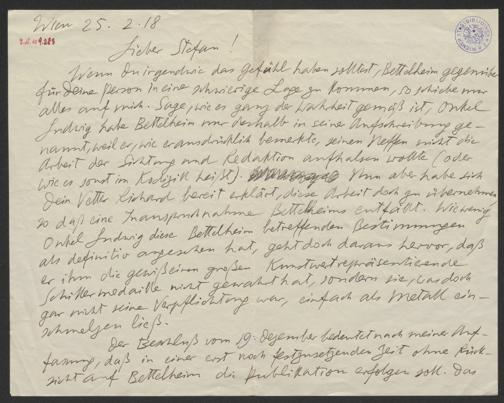 Wien 25. 2. 18
Lieber Stefan!
Wenn Du irgendwie das Gefühl haben solltest, Bettelheim gegenüber
für Deine Person in eine schwierige Lage zu kommen, so schiebe nur
alles auf mich. Sage, wie es ganz der Wahrheit gemäß ist, Onkel
Ludwig habe Bettelheim nur deshalb in seine Aufschreibung ge-
nannt, weil er, wie er ausdrücklich bemerkte, seinen Neffen nicht die
Arbeit der Sichtung und Redaktion aufhalsen wollte (oder
wie es sonst im heißt). Nun aber habe sich
Dein Vetter Richard bereit erklärt, diese Arbeit doch zu übernehmen
so daß eine Inanspruchnahme Bettelheims entfällt. Wie wenig
Onkel Ludwig diese Bettelheim betreffenden Bestimmungen
als definitiv angesehen hat, geht doch daraus hervor, daß
er ihm die gewiß einen großen Kunstwert repräsentierende
Schillermedaille nicht gewahrt hat, sondern sie, was doch
gar nicht seine Verpflichtung war, einfach als Metall ein-
schmelzen ließ.
Der Beschluß vom 19. Dezember bedeutet nach meiner Auf-
fassung, daß in einer erst noch festzusetzenden Zeit ohne Rück-
sicht auf Bettelheim die Publikation erfolgen soll. Das